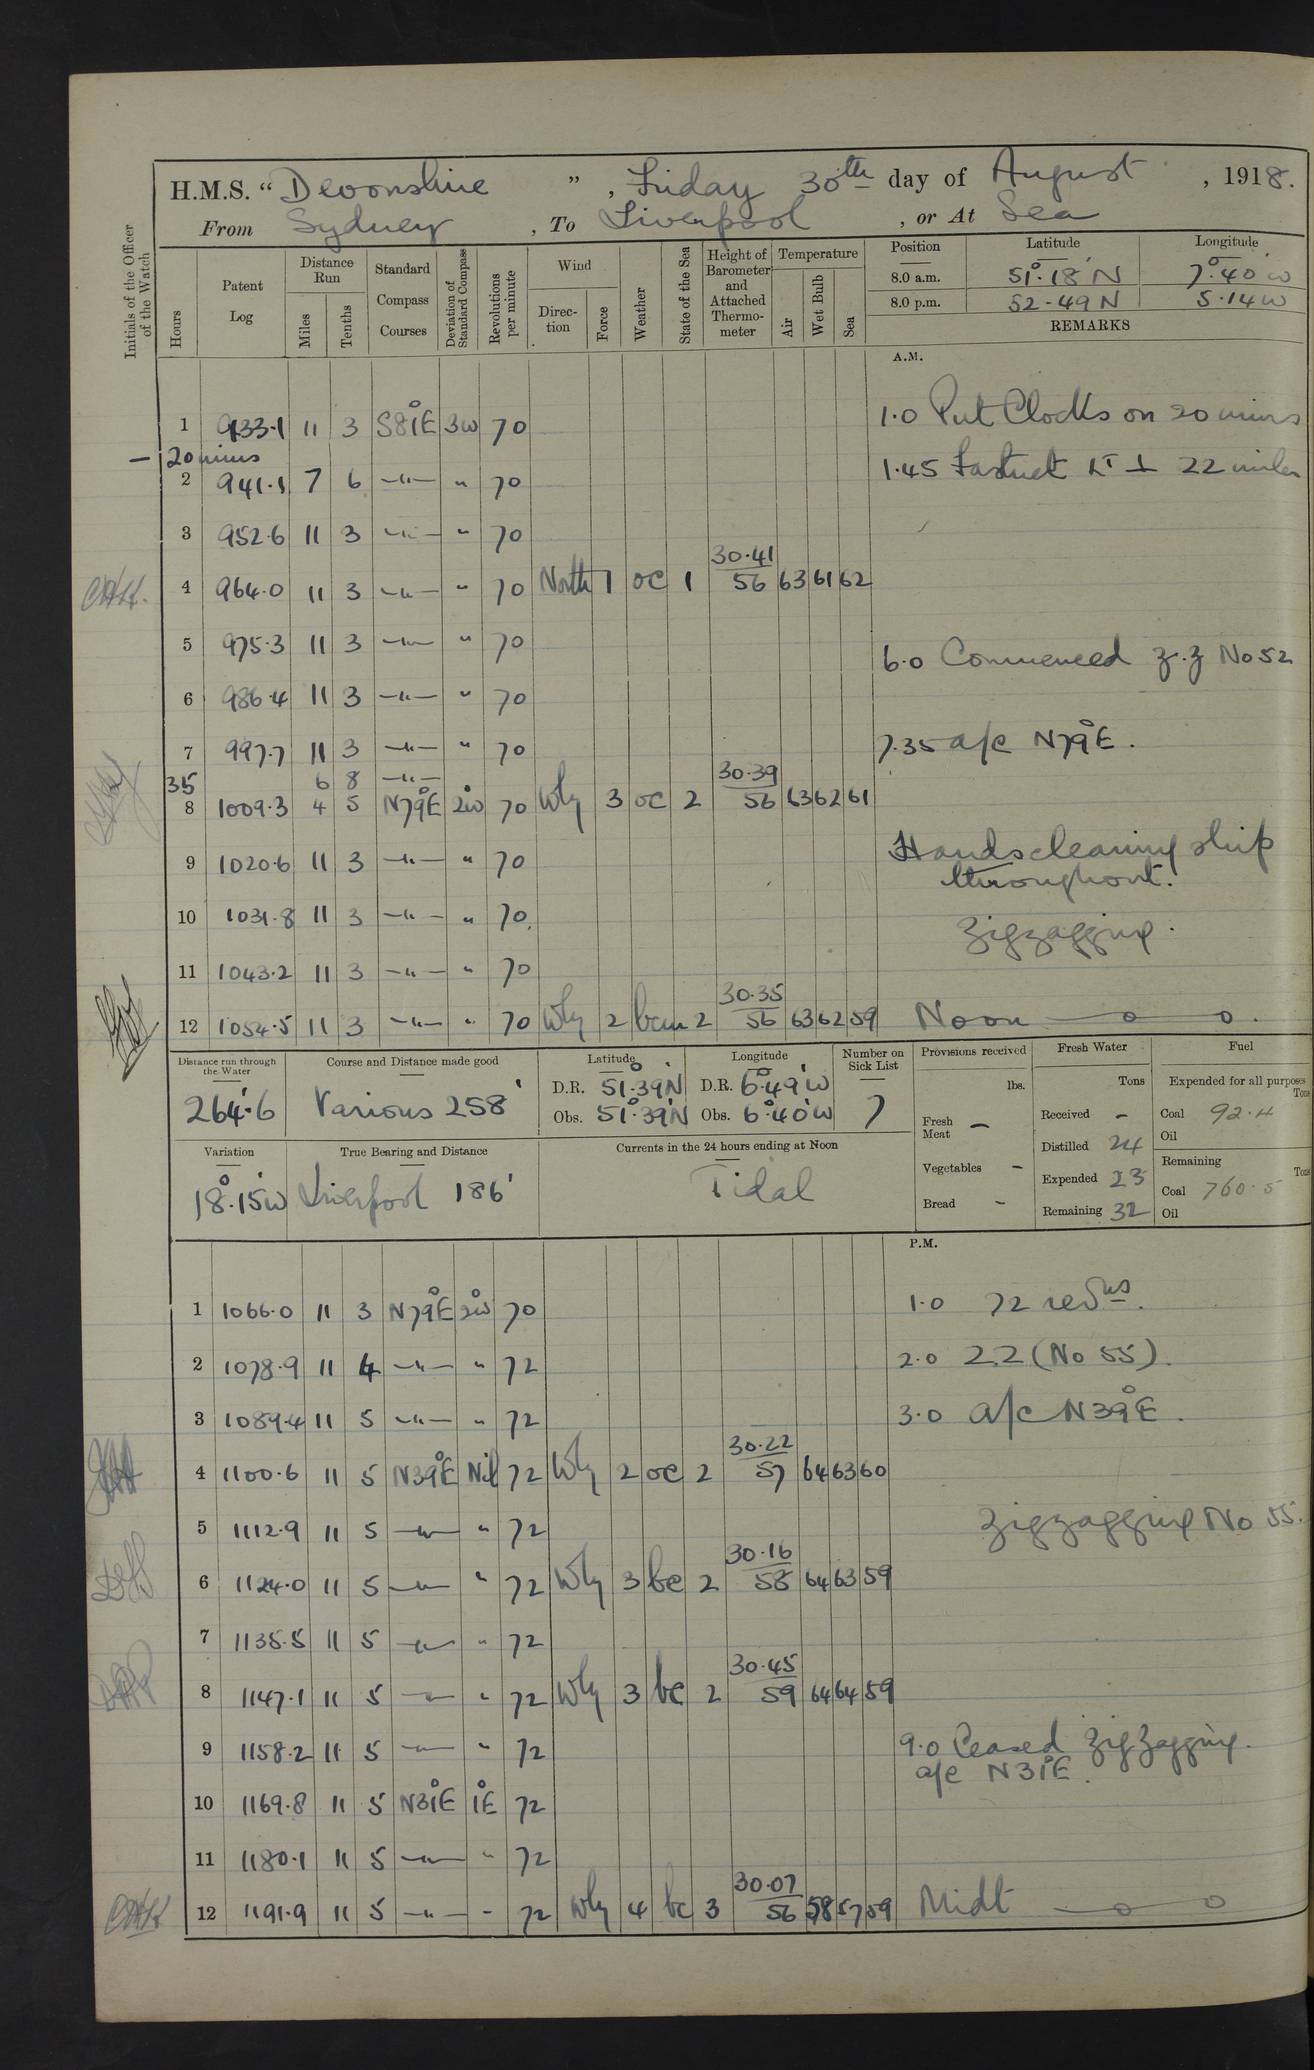 H.M.S. “ Devonshire ” , Friday 30th day of August , 1918.
From Sydney , To Liverpool , or At Sea
Initials of the Officer of the Watch
Hours
Patent Log
Distance Run
Miles
Tenths
Standard Compass Courses
Deviation of Standard Compass
Revolutions per minute
Wind
Direction
Force
Weather
State of the Sea
Height of Barometer and Attached Thermometer
Temperature
Air
Wet Bulb
Sea
Position Latitude Longitude
8.0 a.m. 51°.18'N 7°.40'W
8.0 p.m. 52-49N 5.14W
REMARKS
A.M.
1 933.1 11 3 S81°E 3W 70 1.0 Put Clocks on 20 mins
- 20 mins
2 941.1 7 6 —"— " 70 1.45 Fastnet Lt ⊥ 22 miles
3 952.6 11 3 —"— " 70
4 964.0 11 3 —"— " 70 North 1 oc 1 30.41 56 63 61 62
5 975.3 11 3 —"— " 70 6.0 Commenced z.z No 52
6 986.4 11 3 —"— " 70
7 997.7 11 3 —"— " 70 7.35 a/c N79°E.
35 6 8 —"—
8 1009.3 4 5 N79°E 2°W 70 Wly 3 oc 2 30.39 56 63 62 61
9 1020.6 11 3 —"— " 70 Hands cleaning ship
throughout.
10 1031.8 11 3 —"— " 70 Zigzagging.
11 1043.2 11 3 —"— " 70
12 1054.5 11 3 —"— " 70 Wly 2 bcm 2 30.35 56 63 62 59 Noon
Distance run through the Water
264.6
Course and Distance made good
Various 258'
Latitude
D.R. 51°.39'N
Obs. 51°.39'N
Longitude
D.R. 6°.49'W
Obs. 6°.40'W
Number on Sick List
7
Variation
18°.15'W
True Bearing and Distance
Liverpool 186'
Currents in the 24 hours ending at Noon
Tidal
Provisions received
lbs.
Fresh Meat -
Vegetables -
Bread -
Fresh Water
Tons
Received -
Distilled 24
Expended 23
Remaining 32
Fuel
Expended for all purposes
Tons
Coal 92.4
Oil
Remaining
Tons
Coal 760.5
Oil
P.M.
1 1066.0 11 3 N79°E 2°W 70 1.0 72 revns.
2 1078.9 11 4 —"— " 72 2.0 ZZ (No 55).
3 1089.4 11 5 —"— " 72 3.0 a/c N39°E.
4 1100.6 11 5 N39°E Nil 72 Wly 2 oc 2 30.22 57 64 63 60
5 1112.9 11 5 —"— " 72 Zigzagging No 55.
6 1124.0 11 5 —"— " 72 Wly 3 bc 2 30.16 58 64 63 59
7 1135.5 11 5 —"— " 72
8 1147.1 11 5 —"— " 72 Wly 3 bc 2 30.45 59 64 64 59
9 1158.2 11 5 —"— " 72 9.0 Ceased Zig Zagging.
a/c N31°E.
10 1169.8 11 5 N31°E 1°E 72
11 1180.1 11 5 —"— " 72
12 1191.9 11 5 —"— " 72 Wly 4 bc 3 30.07 56 58 57 59 Midt